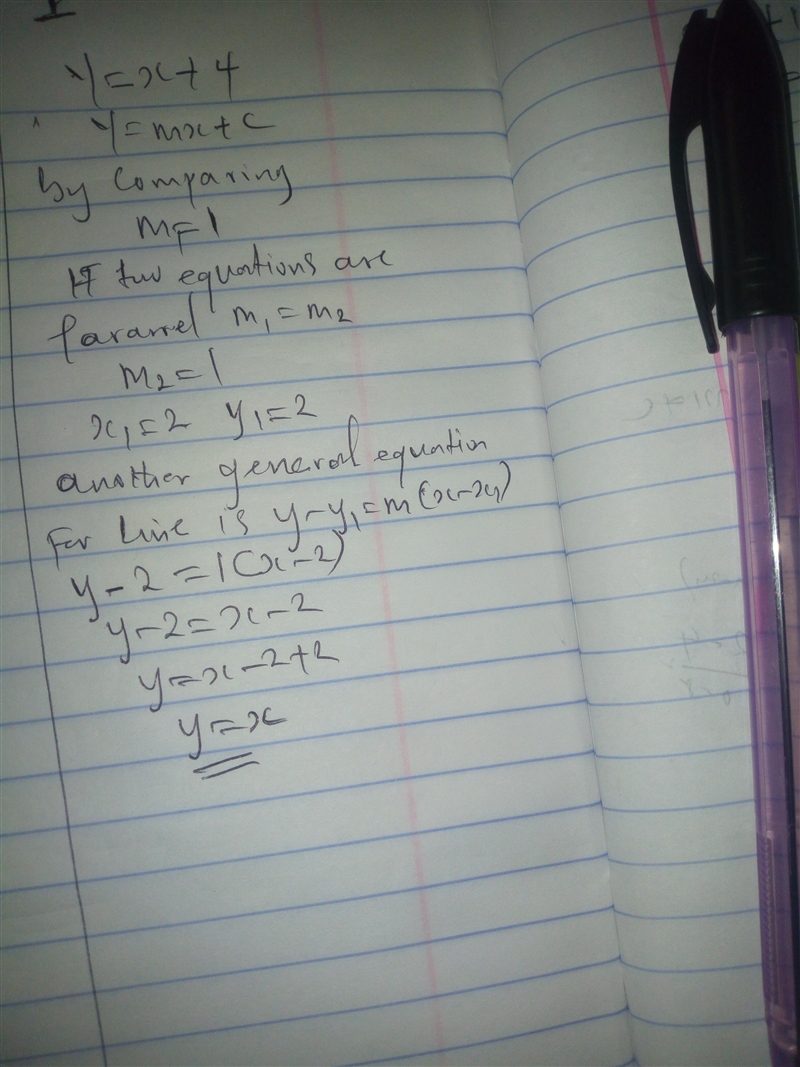 Y=x+4
Y=mx+c
by Comparing
m=1
If two equations are
Pararrel m₁=m₂
m₂=1
x₁=2 y₁=2
another general equation
For Line is y-y₁=m(x-x₁)
y-2=1(x-2)
y-2=x-2
y=x-2+2
y=x